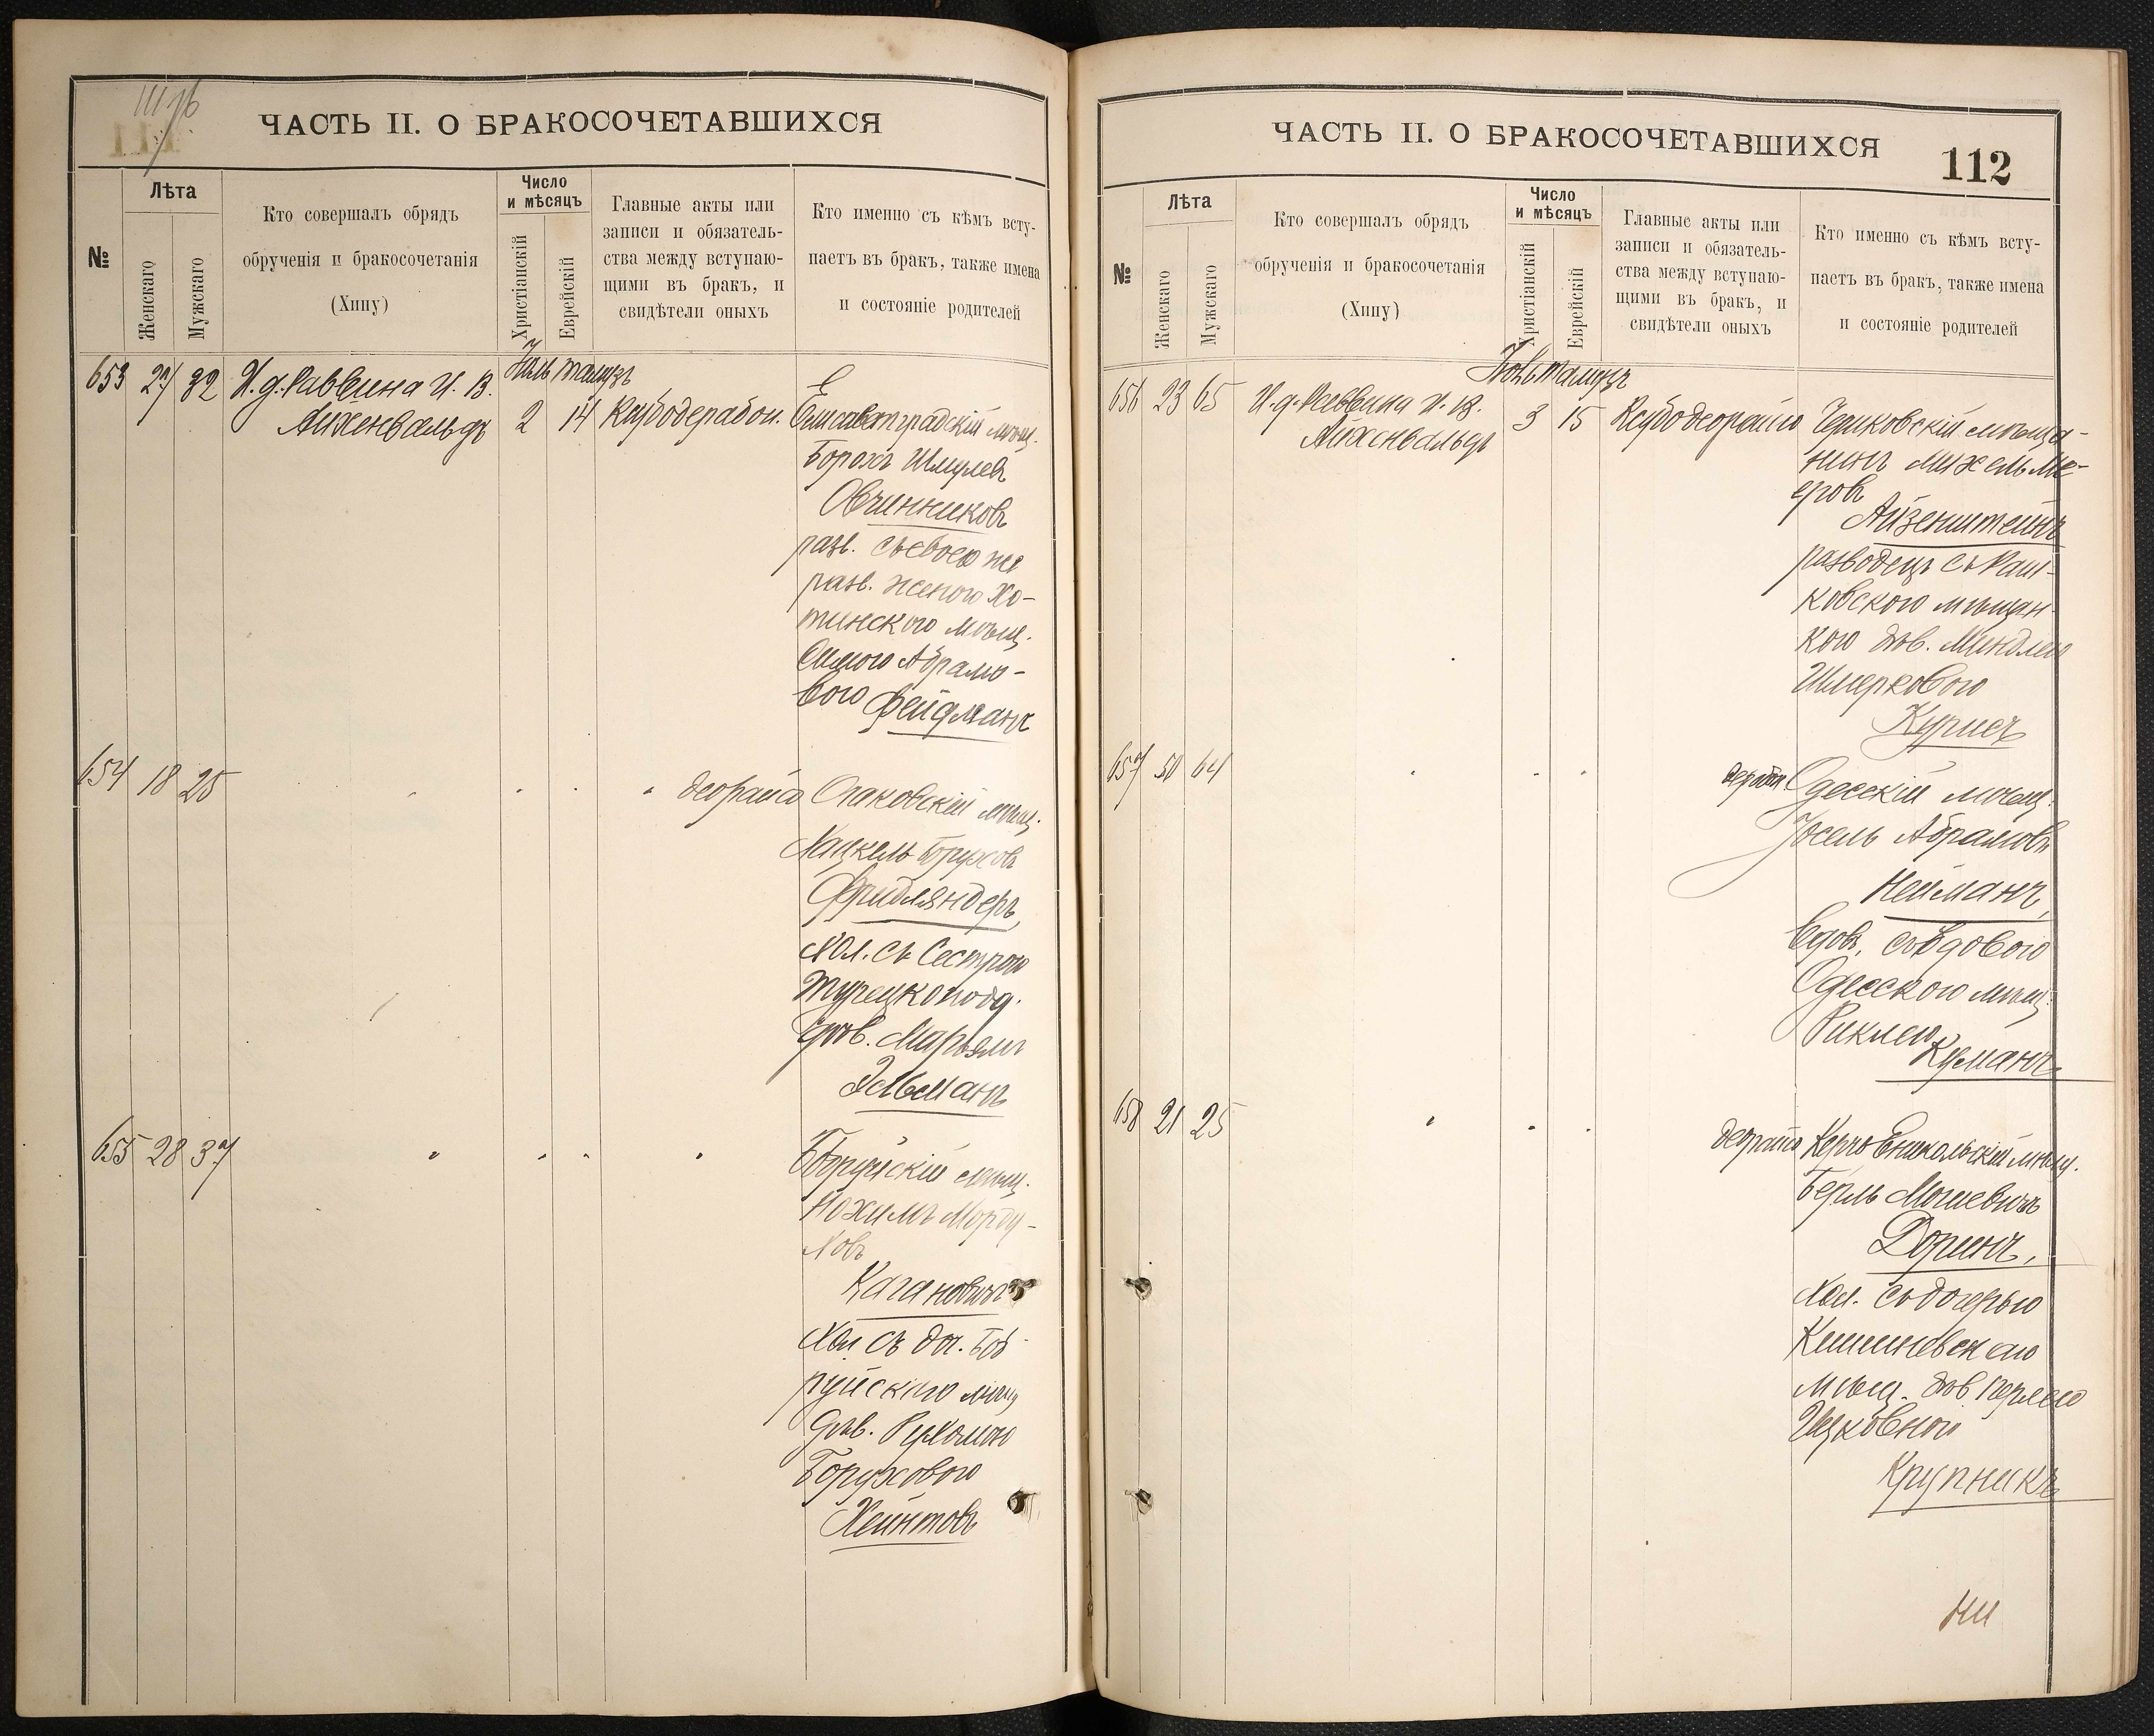 ЧАСТЬ II. О БРАКОСОЧЕТАВШИХСЯ
№
Лѣта
Женскаго
Мужскаго
Кто совершалъ обрядъ
обрученія и бракосочетанія
(Хипу)
Число
и мѣсяцъ
Христіанскій
Еврейскій
Главные акты или
записи и обязатель-
ства между вступаю-
щими въ бракъ, и
свидѣтели оныхъ
Кто именно съ кѣмъ всту-
паетъ въ бракъ, также имена
и состояніе родителей
653 27 32 И. д. Раввина И. В.
Айхенвальдъ
Іюль тамузъ
2 14 Ксубодерабон.
Елисаветградскій мѣщ.
Борохъ Шмулевъ
Овчинниковъ
разв. съ своею же
разв. женою Хо-
тинскою мѣщ.
Симою Абрамо-
вою Фейдманъ
654 18 25
деорайсо
мѣщ.
Фридляндеръ,
хол. съ сестрою
турецкопод.
дѣв. Марьямъ
Зельманъ
655 28 37
Бобруйскій мѣщ.
Нохимъ Морду-
ховъ
Кагановичъ
хол съ доч. Боб-
руйскаго мѣщ
дѣв. Рухомою
Боруховою
Хейнтовъ
ЧАСТЬ II. О БРАКОСОЧЕТАВШИХСЯ
112
№
Лѣта
Женскаго
Мужскаго
Кто совершалъ обрядъ
обрученія и бракосочетанія
(Хипу)
Число
и мѣсяцъ
Христіанскій
Еврейскій
Главные акты или
записи и обязатель-
ства между вступаю-
щими въ бракъ, и
свидѣтели оныхъ
Кто именно съ кѣмъ всту-
паетъ въ бракъ, также имена
и состояніе родителей
656 23 65 И. д. Раввина И. В.
Айхенвальдъ
Іюль тамузъ
3 15 Ксубодеорайсо
Чериковскій мѣща-
нинъ Михель Ме-
еровъ
Айзенштейнъ
разводецъ съ Раш-
ковскою мѣщан-
кою дѣв. Миндлею
Шмерковою
657 50 64
Одесскій мѣщ.
Іосель Абрамовъ
Нейманъ,
вдов. съ вдовою
Одесскою мѣщ.
Риклею
Куманъ
658 21 25
деорайсо
Керчо Еникольскій мѣщ.
Берль Мошевичъ
Доринъ,
хол. съ дочерью
Кишиневскаго
мѣщ. дѣв Перлею
Ицковною
Крупникъ